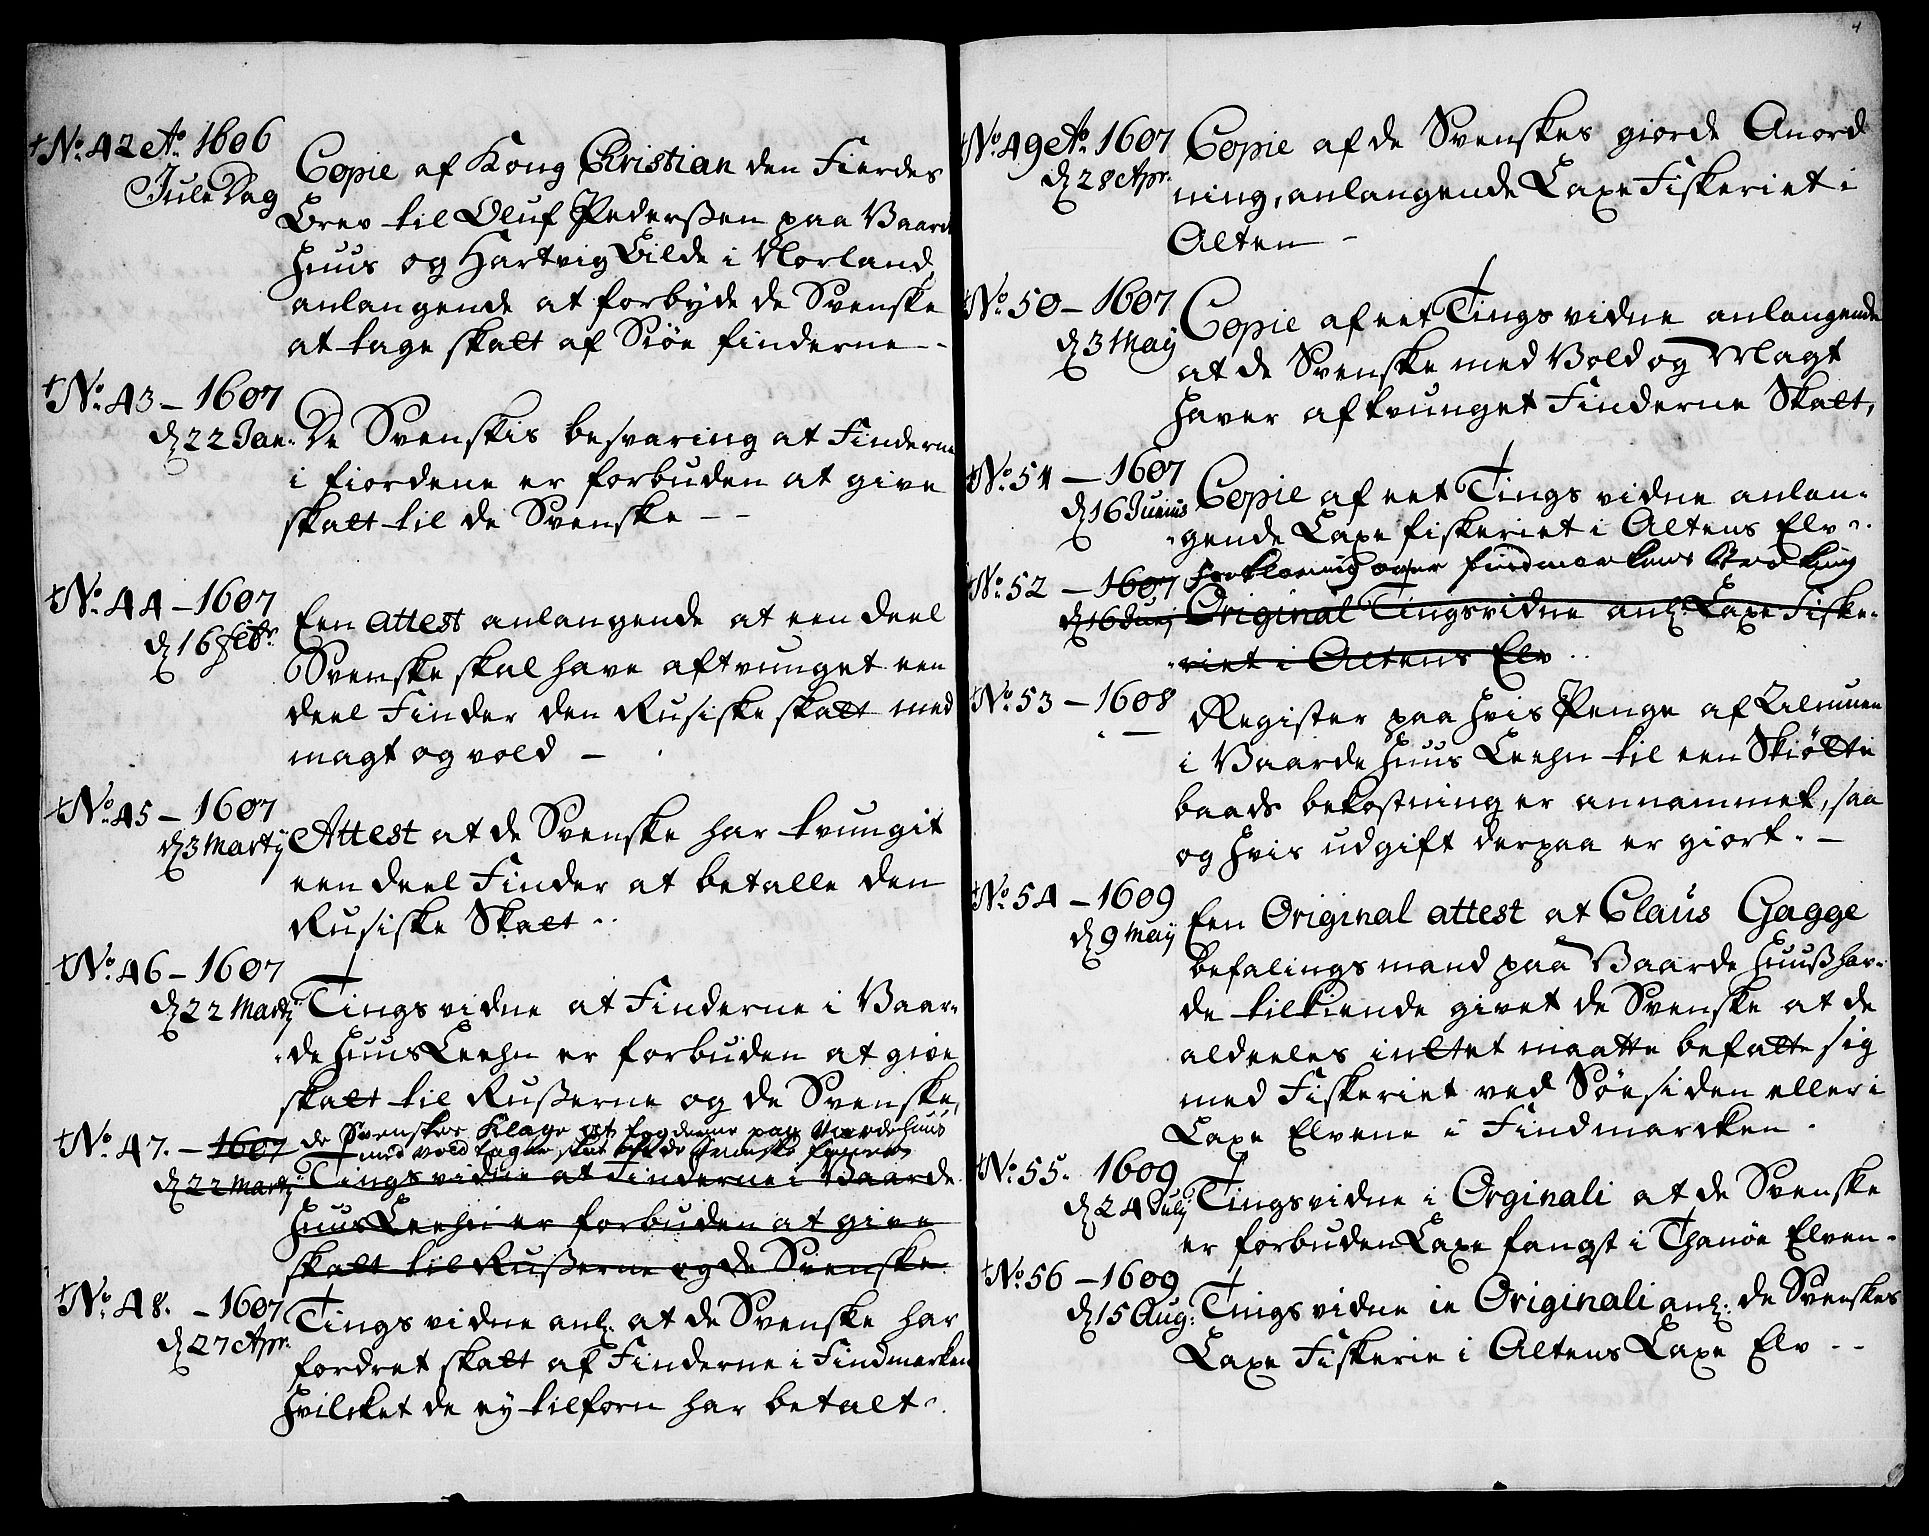 †No. 42 Ao. 1606
Jule Dag
Copie af Kong Christian den Fierdes
Brev til Oluf Pederßen paa Vaard
Huus og Hartvig Bilde i Norland
anlangende at forbyde de Svenske
at tage skatt af Siøe finderne -
†No. 43 - 1607
d 22 Jan.
De Svenskis besvaring at Finderne
i fiordene er forbuden at give
skatt til de Svenske - -
†No. 44 - 1607
d 16 febr.
Een attest anlangende at een deel
Svenske skal have aftvunget een
deel Finder den Rusiske skatt med
magt og vold -
†No. 45 - 1607
d 3 Martij
Attest at de Svenske har tvungit
een deel Finder at betalle den
Rusiske Skatt.
†No. 46 - 1607
d 22 Martij
Tings vidne at Finderne i Vaar-
de Huus Leehn er forbuden at give
skatt til Rußerne og de Svenske,
†No. 47. - 1607
de Svenskes Klage at fogderne paa Vardehuus
med vold tager skat af de Svenske
d 22 Martij
Tings vidne at Finderne i Vaarde
Huus Leehn er forbuden at give
skatt til Rußerne og de Svenske
†No. 48. - 1607
d 27 Apr.
Tings vidne anl: at de Svenske har
fordret skatt af Finderne i Findmarken
Hvilcket de ey tilforn har betalt.
4
†No. 49 Ao. 1607
d 28 Apr.
Copie af de Svenskes giorde Anord
ning, anlangende Laxe Fiskeriet i
Alten -
†No. 50 - 1607
d 3 Maij
Copie af eet Tings vidne anlangende
at de Svenske med Vold og Magt
haver aftvunget Finderne Skatt,
†No. 51 - 1607
d 16 Junius
Copie af eet Tings vidne anlan-
gende Laxe fiskeriet i Altens Elv.
†No. 52 - 1607
Forklaring over findmarkens
d 16 Junij
Original Tingsvidne anl: Laxe Fiske-
riet i Altens Elv
†No. 53 - 1608
Register paa Hvis Penge af Almuen
i Vaarde Huus Leehn til een Skiøtte
baads bekostning er annammet, saa
og Hvis udgift derpaa er giort. -
†No. 54 - 1609
d 9 Maij
Een Original attest at Claus Gagge
befalings mand paa Vaarde Huuß har-
de tilkiende givet de Svenske at de
aldeeles inttet maatte befatte sig
med Fiskeriet ved Søesiden eller i
Laxe Elvene i Findmarcken.
†No. 55. 1609
d 24 July
Tingsvidne i Orginali at de Svenske
er forbuden Laxe fangst i Thanøe Elven.
†No. 56 - 1609
d 15 Aug:
Tings vidne in Originali anl: de Svenskes
Laxe Fiskerie i Altens Laxe Elv - -